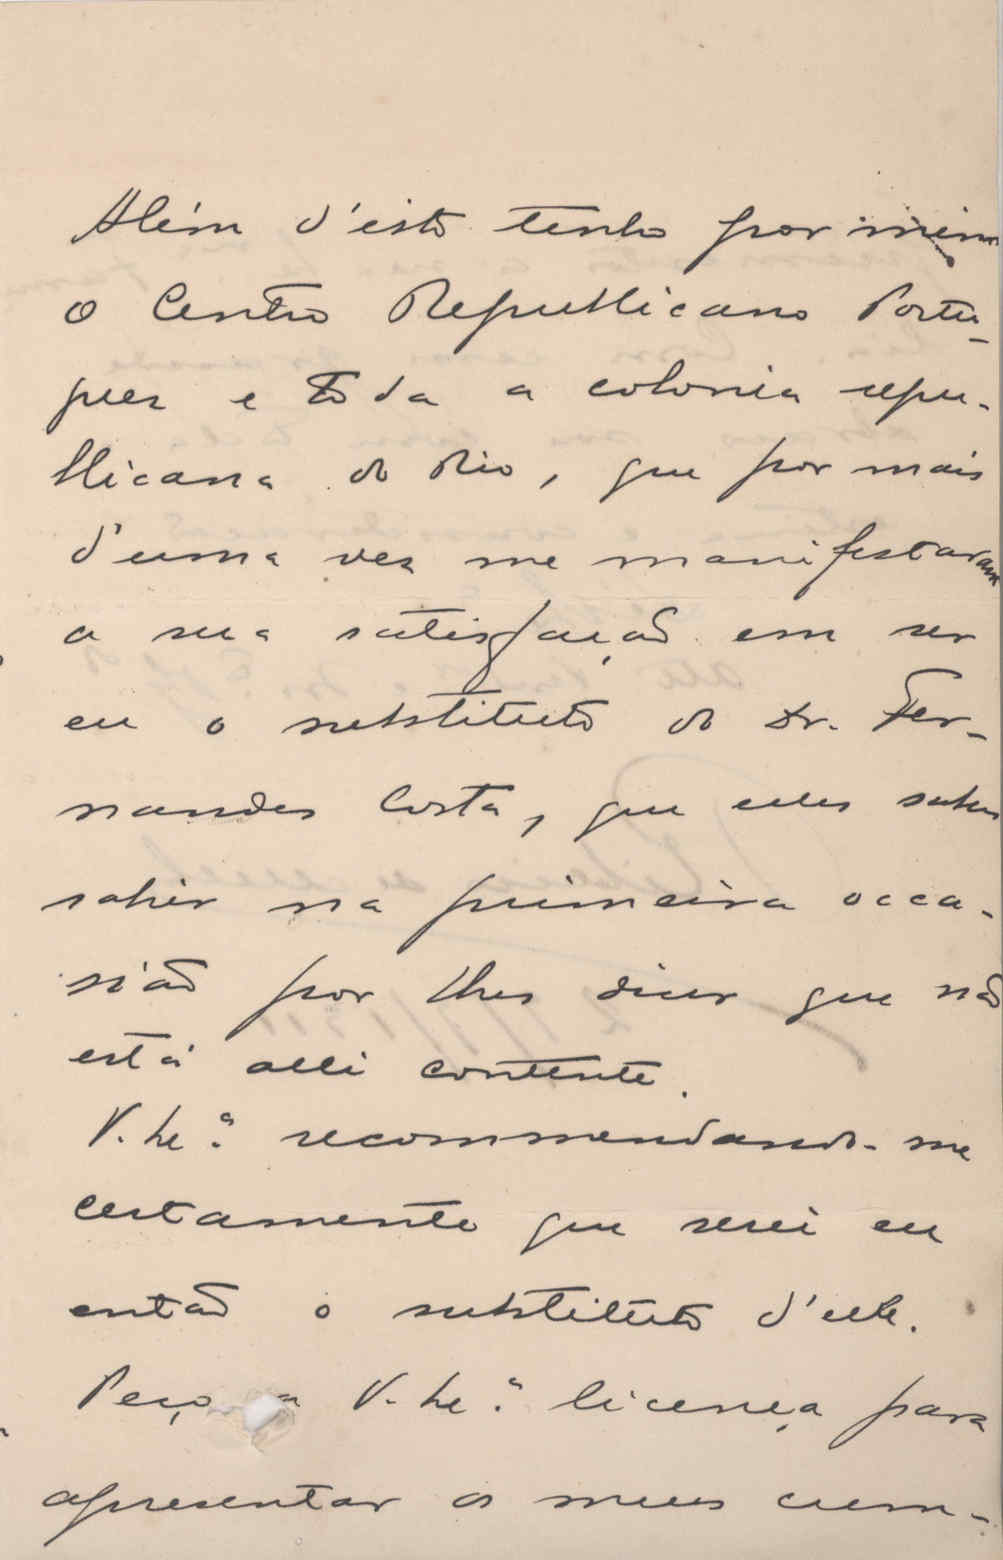 Além d'isto tenho por mim
o Centro Republicano Portu-
guez e toda a colonia repu-
blicana do Rio, que por mais
d'uma vez me manifestaram
a sua satisfação em ser
eu o substituto do Dr. Fer-
nandes Costa, que elles sabem
sahir na primeira occa-
sião por lhes dizer que não
está alli contente.
V. Ex.ª recommendando-me
certamente que serei eu
então o substituto d'elle.
Peço a V. Ex.ª licença para
apresentar os meus cum-